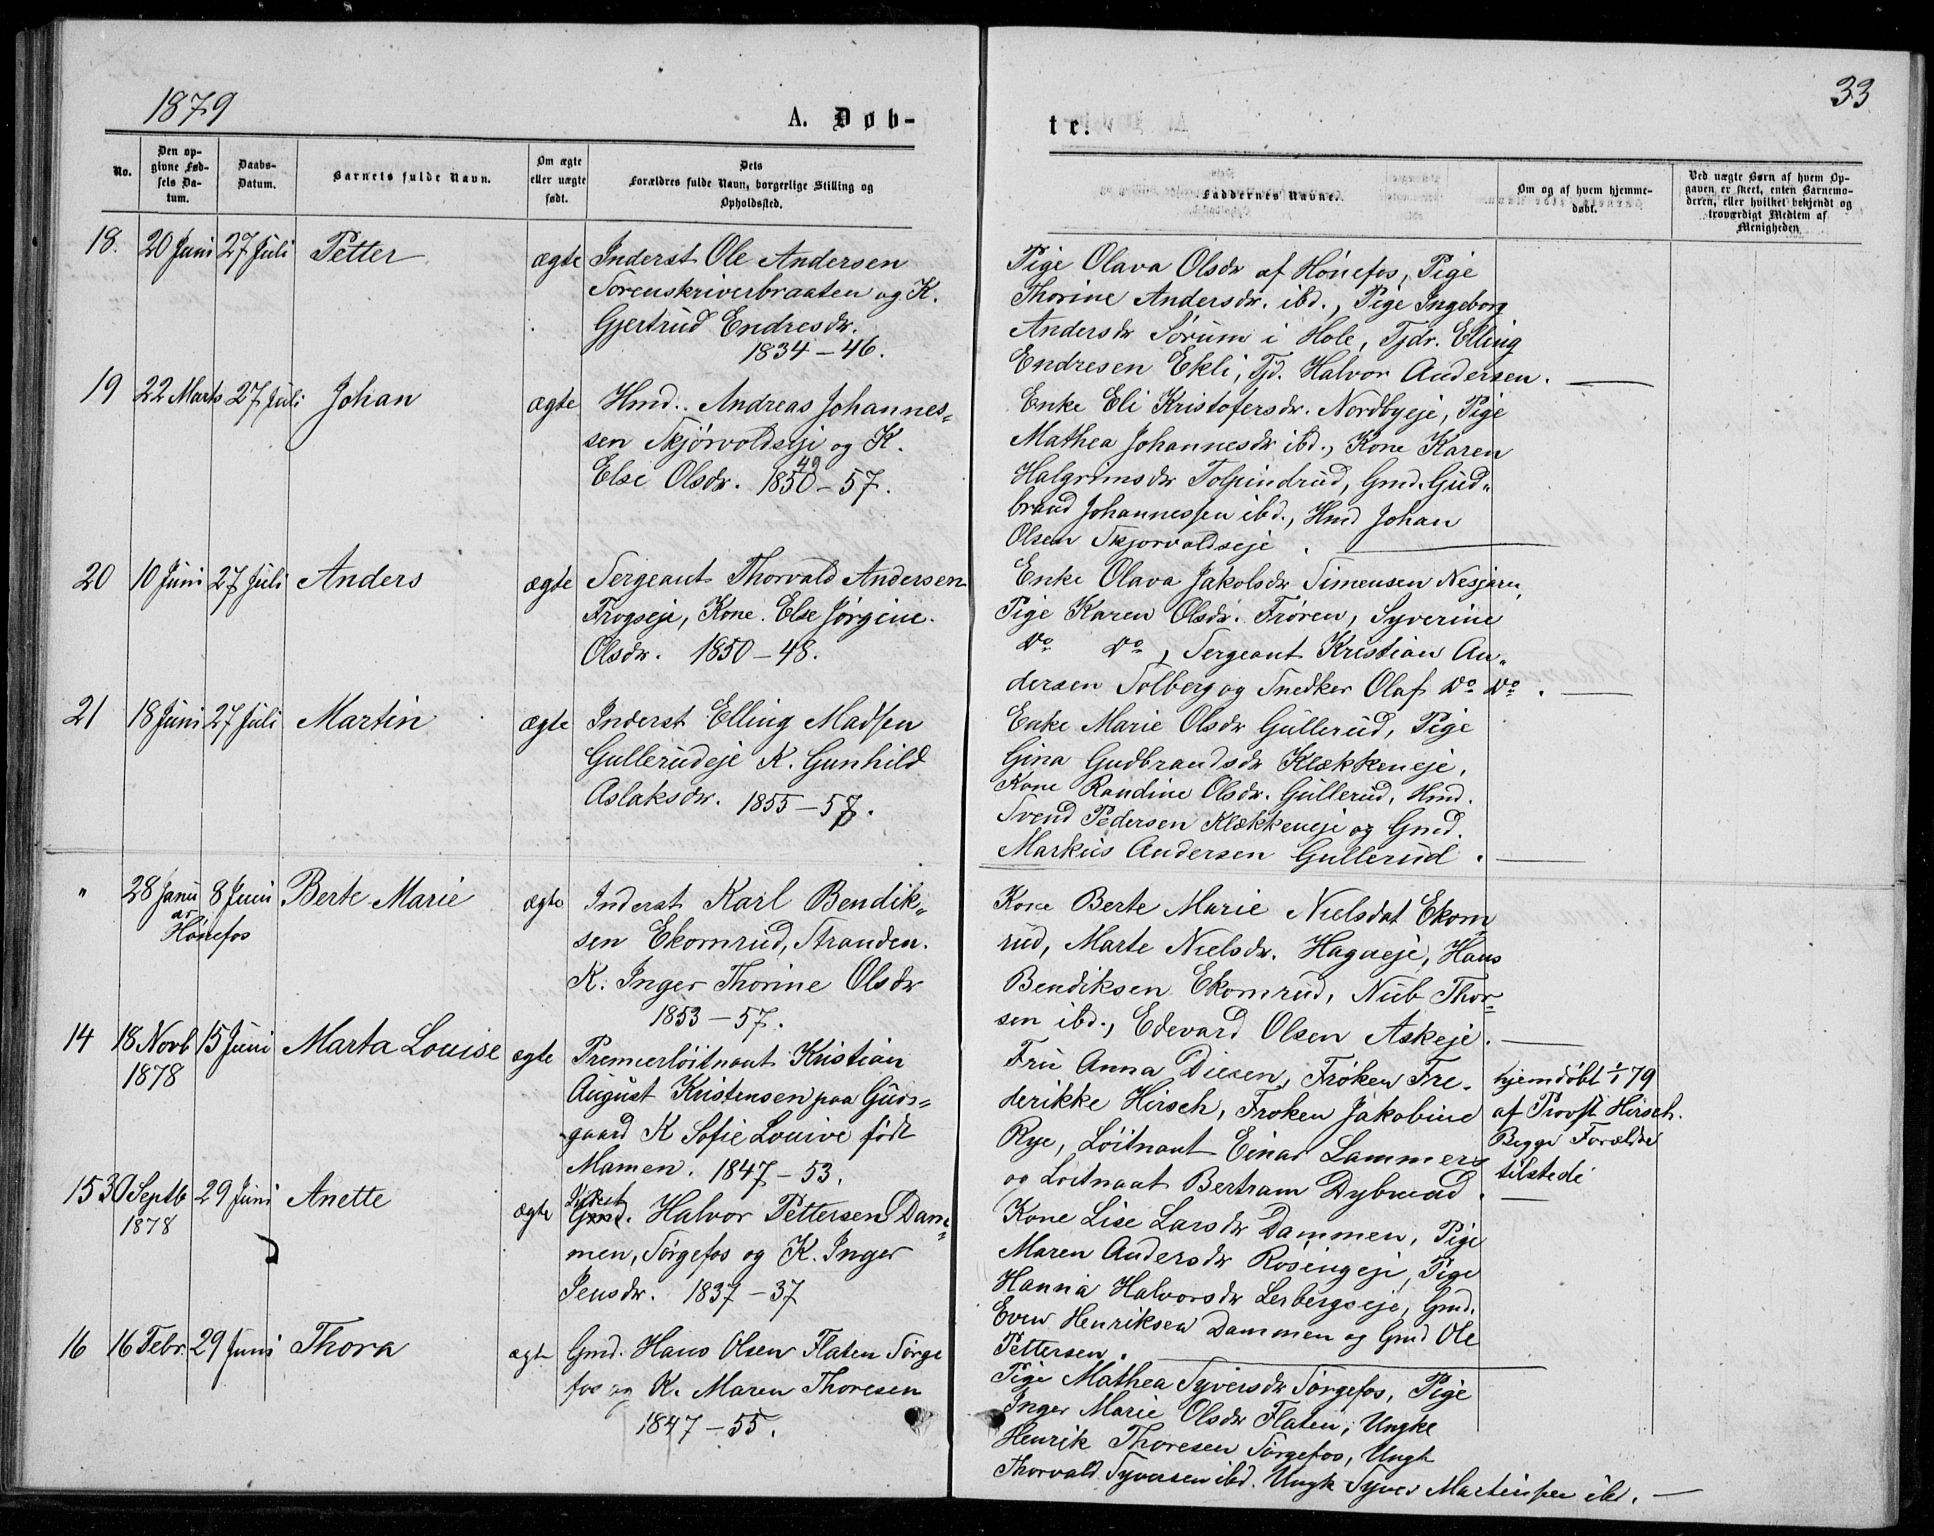 1879
A. Døb-
No.
Den op-
givne Fød-
sels Da-
tum.
Daabs-
Datum.
Barnets fulde Navn.
Om ægte
eller uægte
født.
Dets
Forældres fulde Navn, borgerlige Stilling og
Opholdssted.
18. 20 Juni 27 Juli Petter ægte Inderst Ole Andersen
Sorenskriverbraaten og K.
Gjertrud Endresdr.
1834 - 46.
19 22 Marts 27 Juli Johan ægte Hmd. Andreas Johannes-
sen Skjørvoldseje og K.
49
Else Olsdr. 1850 - 57.
20 10 Juni 27 Juli Anders ægte Sergeant Thorvald Andersen
Frogseje, Kone. Else Jørgine.
Olsdr. 1850 - 48.
21 18 Juni 27 Juli Martin ægte Inderst Elling Madsen
Gullerudeje K. Gunhild
Aslaksdr. 1855 - 57.
" 28 Janu 8 Juni Berte Marie ægte Inderst Karl Bendik-
ar
Hønefos
sen Ekornrud, Stranden.
K. Inger Thorine Olsdr
1853 - 57.
14 18 Novb 15 Juni Marta Louise ægte Premierløitnant Kristian
1878
August Kristensen paa Gus-
gaard K Sofie Louive født
Mamen. 1847 - 53.
15 30 Septb 29 Juni Anette ægte Inderst Gmd. Halvor Pettersen Dam-
1878
men, Sørgefos og K. Inger
Jensdr. 1837 - 37
16 16 Febr. 29 Juni Thora ægte Gmd. Hans Olsen Flaten Sørge
fos og K. Maren Thoresen
1847 - 55.
33
te.
Faddernes Navne.
Om og af hvem hjemme-
døbt.
Ved uægte Børn af hvem Op-
gaven er skeet, enten Barnemo-
deren, eller hvilket bekjendt og
troværdigt Medlem af
Menigheden
Pige Olava Olsdr af Hønefos, Pige
Thorine Andersdr. ibd., Pige Ingeborg
Andersdr Sørum i Hole, Tjdr. Elling
Endresen Ekli, Tjd. Halvor Andersen.
Enke Eli Kristofersdr. Nordbyeje, Pige
Mathea Johannesdr ibd., Kone Karen
Halgrimsdr Tolpindrud, Gmd. Gud-
brand Johannessen ibd., Hmd Johan
Olsen Skjorvoldseje.
Enke Olava Jakobsdr Simensen Nesjøren,
Pige Karen Olsdr. Frøren, Syverine
Do Do, Sergeant Kristian An-
dersen Solberg og Snedker Olaf Do Do.
Enke Marie Olsdr Gullerud, Pige
Gina Gudbrandsdr Klækkeneje,
Kone Randine Olsdr. Gullerud, Hmd.
Svend Pedersen Klækkeneje og Gmd.
Markus Andersen Gullerud.
Kone Berte Marie Nielsdat Ekorn-
rud, Marte Nielsdr. Hagaeje, Hans
Bendiksen Ekornrud, Nub Thor-
sen ibd., Edevard Olsen Askeje.
Fru Anna Diesen, Frøken Fre-
derikke Hirsch, Frøken Jakobine
Rye, Løitnant Einar Lammers
og Løitnant Bertram Dybwad.
hjemdøbt 1/1 79
af Provst Hirsch.
Begge Forældre
tilstede
Kone Lise Larsdr Dammen, Pige
Maren Andersdr Røsingeje, Pige
Hanna Halvorsdr Lerbergseje, Gmd.
Even Henriksen Dammen og Gmd Ole
Pettersen.
Pige Mathea Syversdr Sørgefos, Pige
Inger Marie Olsdr Flaten, Ungke
Henrik Thoresen Sørgefos, Ungk
Thorvald Syversen ibd. Ungk Syver Martinsen ibd.